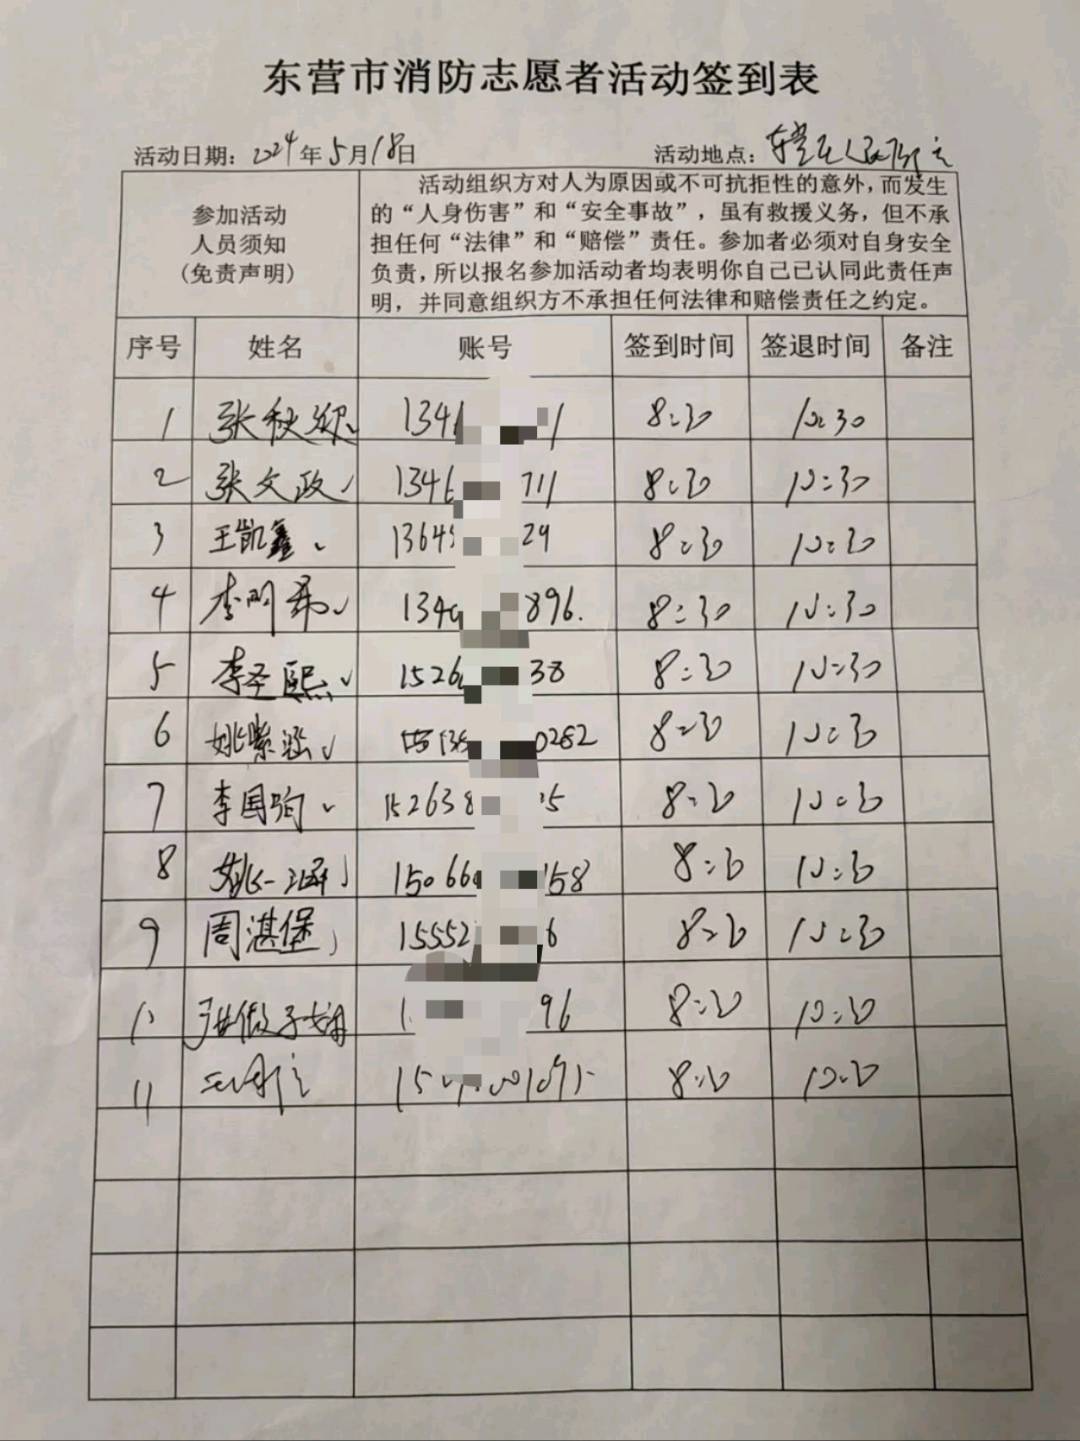 东营市消防志愿者活动签到表
活动日期：2024年5月18日 活动地点：
参加活动
人员须知
（免责声明）
活动组织方对人为原因或不可抗拒性的意外，而发生
的“人身伤害”和“安全事故”，虽有救援义务，但不承
担任何“法律”和“赔偿”责任。参加者必须对自身安全
负责，所以报名参加活动者均表明你自己已认同此责任声
明，并同意组织方不承担任何法律和赔偿责任之约定。
序号 姓名 账号 签到时间 签退时间 备注
1 张秋 134 1 8:30 10:30
2 张文政 134 711 8:30 10:30
3 王凯鑫 1364 29 8:30 10:30
4 李明 134 896. 8:30 10:30
5 李圣熙 1526 38 8:30 10:30
6 姚紫涵 0282 8:30 10:30
7 李国珣 152638 5 8:30 10:30
8 姚一涵 15066 158 8:30 10:30
9 周湛堡 15552 6 8:30 10:30
10 1 96 8:30 10:30
11 8:30 10:30